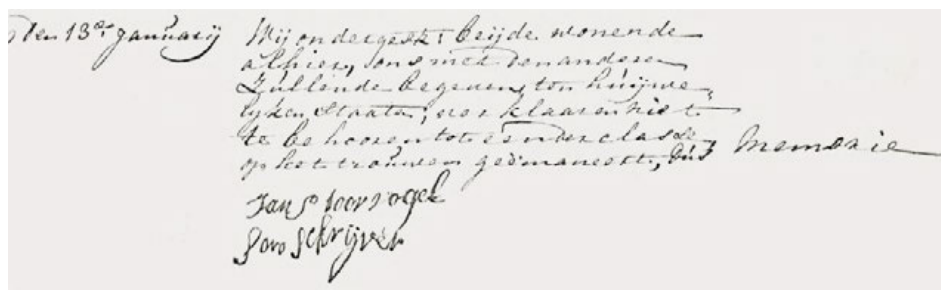 Den 13en Januarij Wij ondergesk: beijde wonende
alhier, ons met den anderen
Zullende begeven, ten huijwe„
lijken Staate; verklaaren niet
te behooren tot een der classe
op het trouwen geëmaneert, dus Memorie
Jan
Schrijver